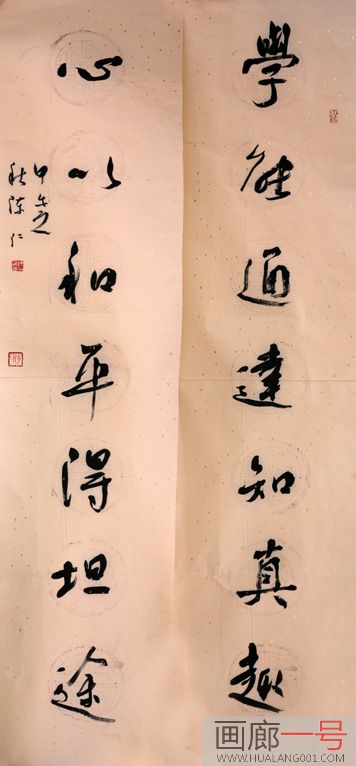 學能通達知真趣
心以和平得坦途
甲午之
秋陈仁
画廊一号
WWW.HUALANG001.COM